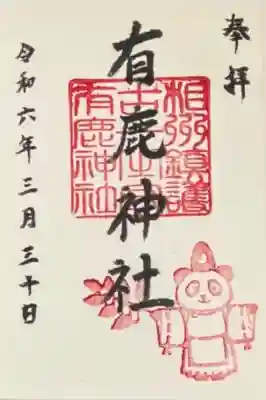 奉拝
有鹿神社
相州鎮護
有鹿神社
令和六年三月三十日